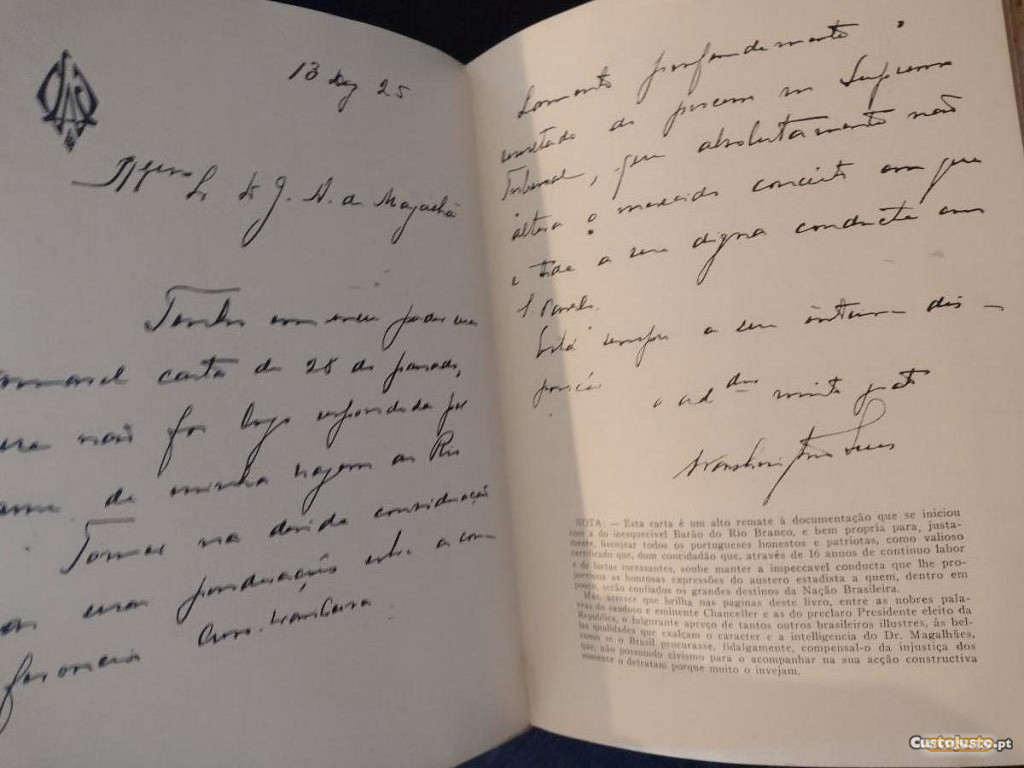 13 Dez 25
de Magalhães
Tenho em meu poder sua
carta de 28 do passado,
não foi logo respondida por
de minha viagem ao Rio
Tomei na devida consideração
suas ponderações sobre a con-
Lamento profundamente o
resultado do no Supremo
Tribunal, que absolutamente não
altera o merecido conceito em que
é tida a sua digna conducta em
S. Paulo.
Está sempre a seu inteiro dis-
muito grato
Washington Luis
NOTA: — Esta carta é um alto remate à documentação que se iniciou
com a do inesquecivel Barão do Rio Branco, e bem propria para, justa-
mente, lisonjear todos os portugueses honestos e patriotas, como valioso
certificado que, dum concidadão que, através de 16 annos de continuo labor
e de lutas incessantes, soube manter a impeccavel conducta que lhe pro-
porciona as honrosas expressões do austero estadista a quem, dentro em
pouco, serão confiados os grandes destinos da Nação Brasileira.
Mas, accresce que brilha nas paginas deste livro, entre as nobres pala-
vras do saudoso e eminente Chanceller e as do preclaro Presidente eleito da
Republica, o fulgurante apreço de tantos outros brasileiros illustres, ás bel-
las qualidades que exalçam o caracter e a intelligencia do Dr. Magalhães,
como se o Brasil procurasse, fidalgamente, compensal-o da injustiça dos
que, não possuindo civismo para o acompanhar na sua acção constructiva
somente o detratam porque muito o invejam.
CustoJusto.pt